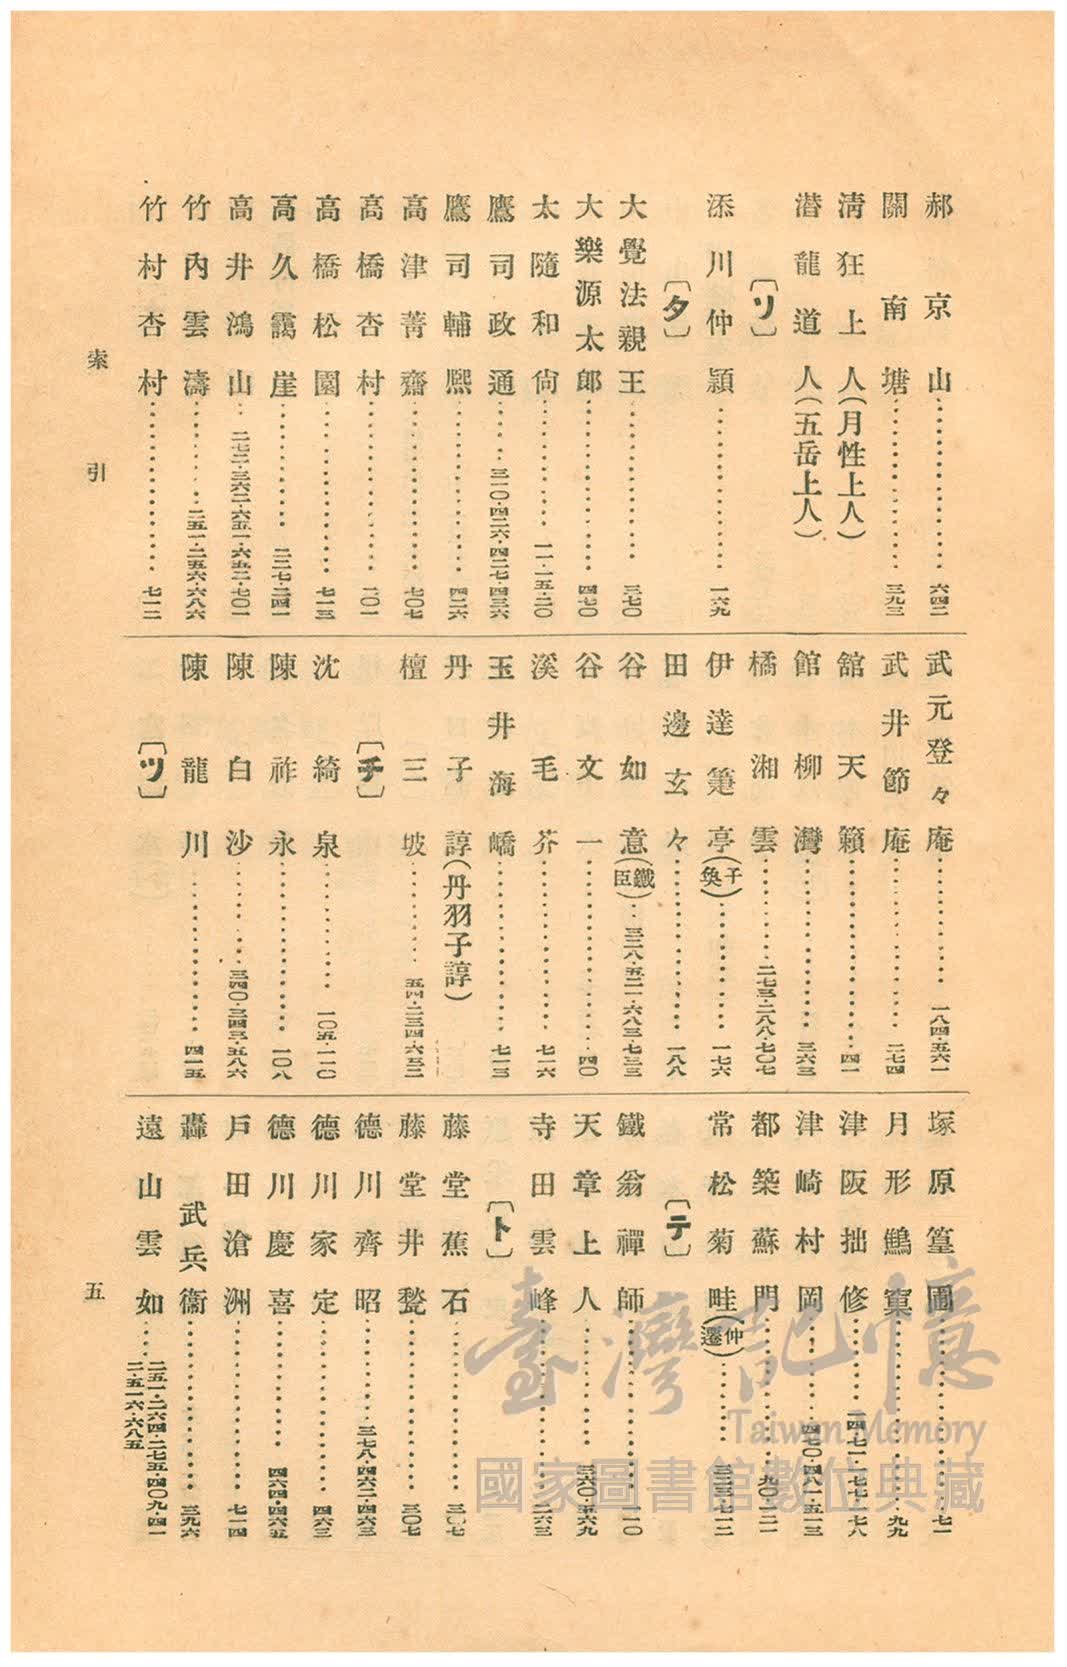 郝京山……六四二
關南塘……三九三
淸狂上人(月性上人)
潛龍道人(五岳上人)
〔ソ〕
添川仲穎……一六九
〔タ〕
大覺法親王……三七〇
大樂源太郎……四七〇
太隨和尙……一一・一五・二〇
鷹司政通……三一〇・四二六・四二七・四三六
鷹司輔熙……四二六
高津菁齋……七〇七
高橋杏村……二〇一
高橋松園……七一三
高久靄崖……二二七・二四一
高井鴻山……二七二・三六二・六五一・六五二・七〇一
竹內雲濤……二五一・二五六・六八六
竹村杏村……七一二
武元登々庵……一八四・五六一
武井節庵……二七四
舘天籟……四一
館柳灣……三六三
橘湘雲……二七三・二八八・七〇七
伊達篴亭(子奐)……一七六
田邊玄々……一八八
谷如意(鐵臣)……三三八・五二一・六八三・七三三
谷文一……四〇
溪毛芥……七一六
玉井海嶠……七一三
丹子諄(丹羽子諄)
檀三坡……五四・二三四・六五二
〔チ〕
沈綺泉……一〇五・一一〇
陳祚永……一〇八
陳白沙……三四〇・三四三・五八六
陳龍川……四一五
〔ツ〕
塚原篁圃……七一
月形鷦窠……九九
津阪拙修……四・七一・七七・七八
津崎村岡……四七〇・四八一・五一三
都築蘇門……九〇・一二一
常松菊畦(仲遷)……三三三・七一二
〔テ〕
鐵翁禪師……一一〇
天章上人……三六〇・五六九
寺田雲峰……二六三
〔ト〕
藤堂蕉石……三〇七
藤堂井甃……三〇七
德川齊昭……三七八・四六二・四六三
德川家定……四六三
德川慶喜……四六四・四六五
戶田滄洲……七一四
轟武兵衞……三九六
遠山雲如……二五一・二六四・二七五・四〇九・四一二・五一六・六八五
索引
五
臺灣記憶
Taiwan Memory
國家圖書館數位典藏